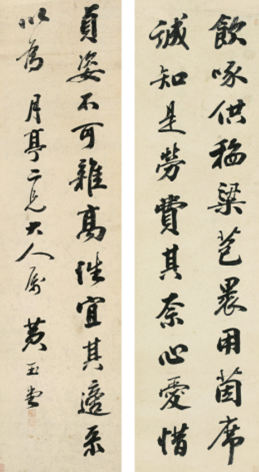 飲啄供稻粱苞裹用茵席
誠知是勞費其奈心愛惜
貞姿不可雜高性宜其適
以為 月亭二兄大人属 黄玉堂